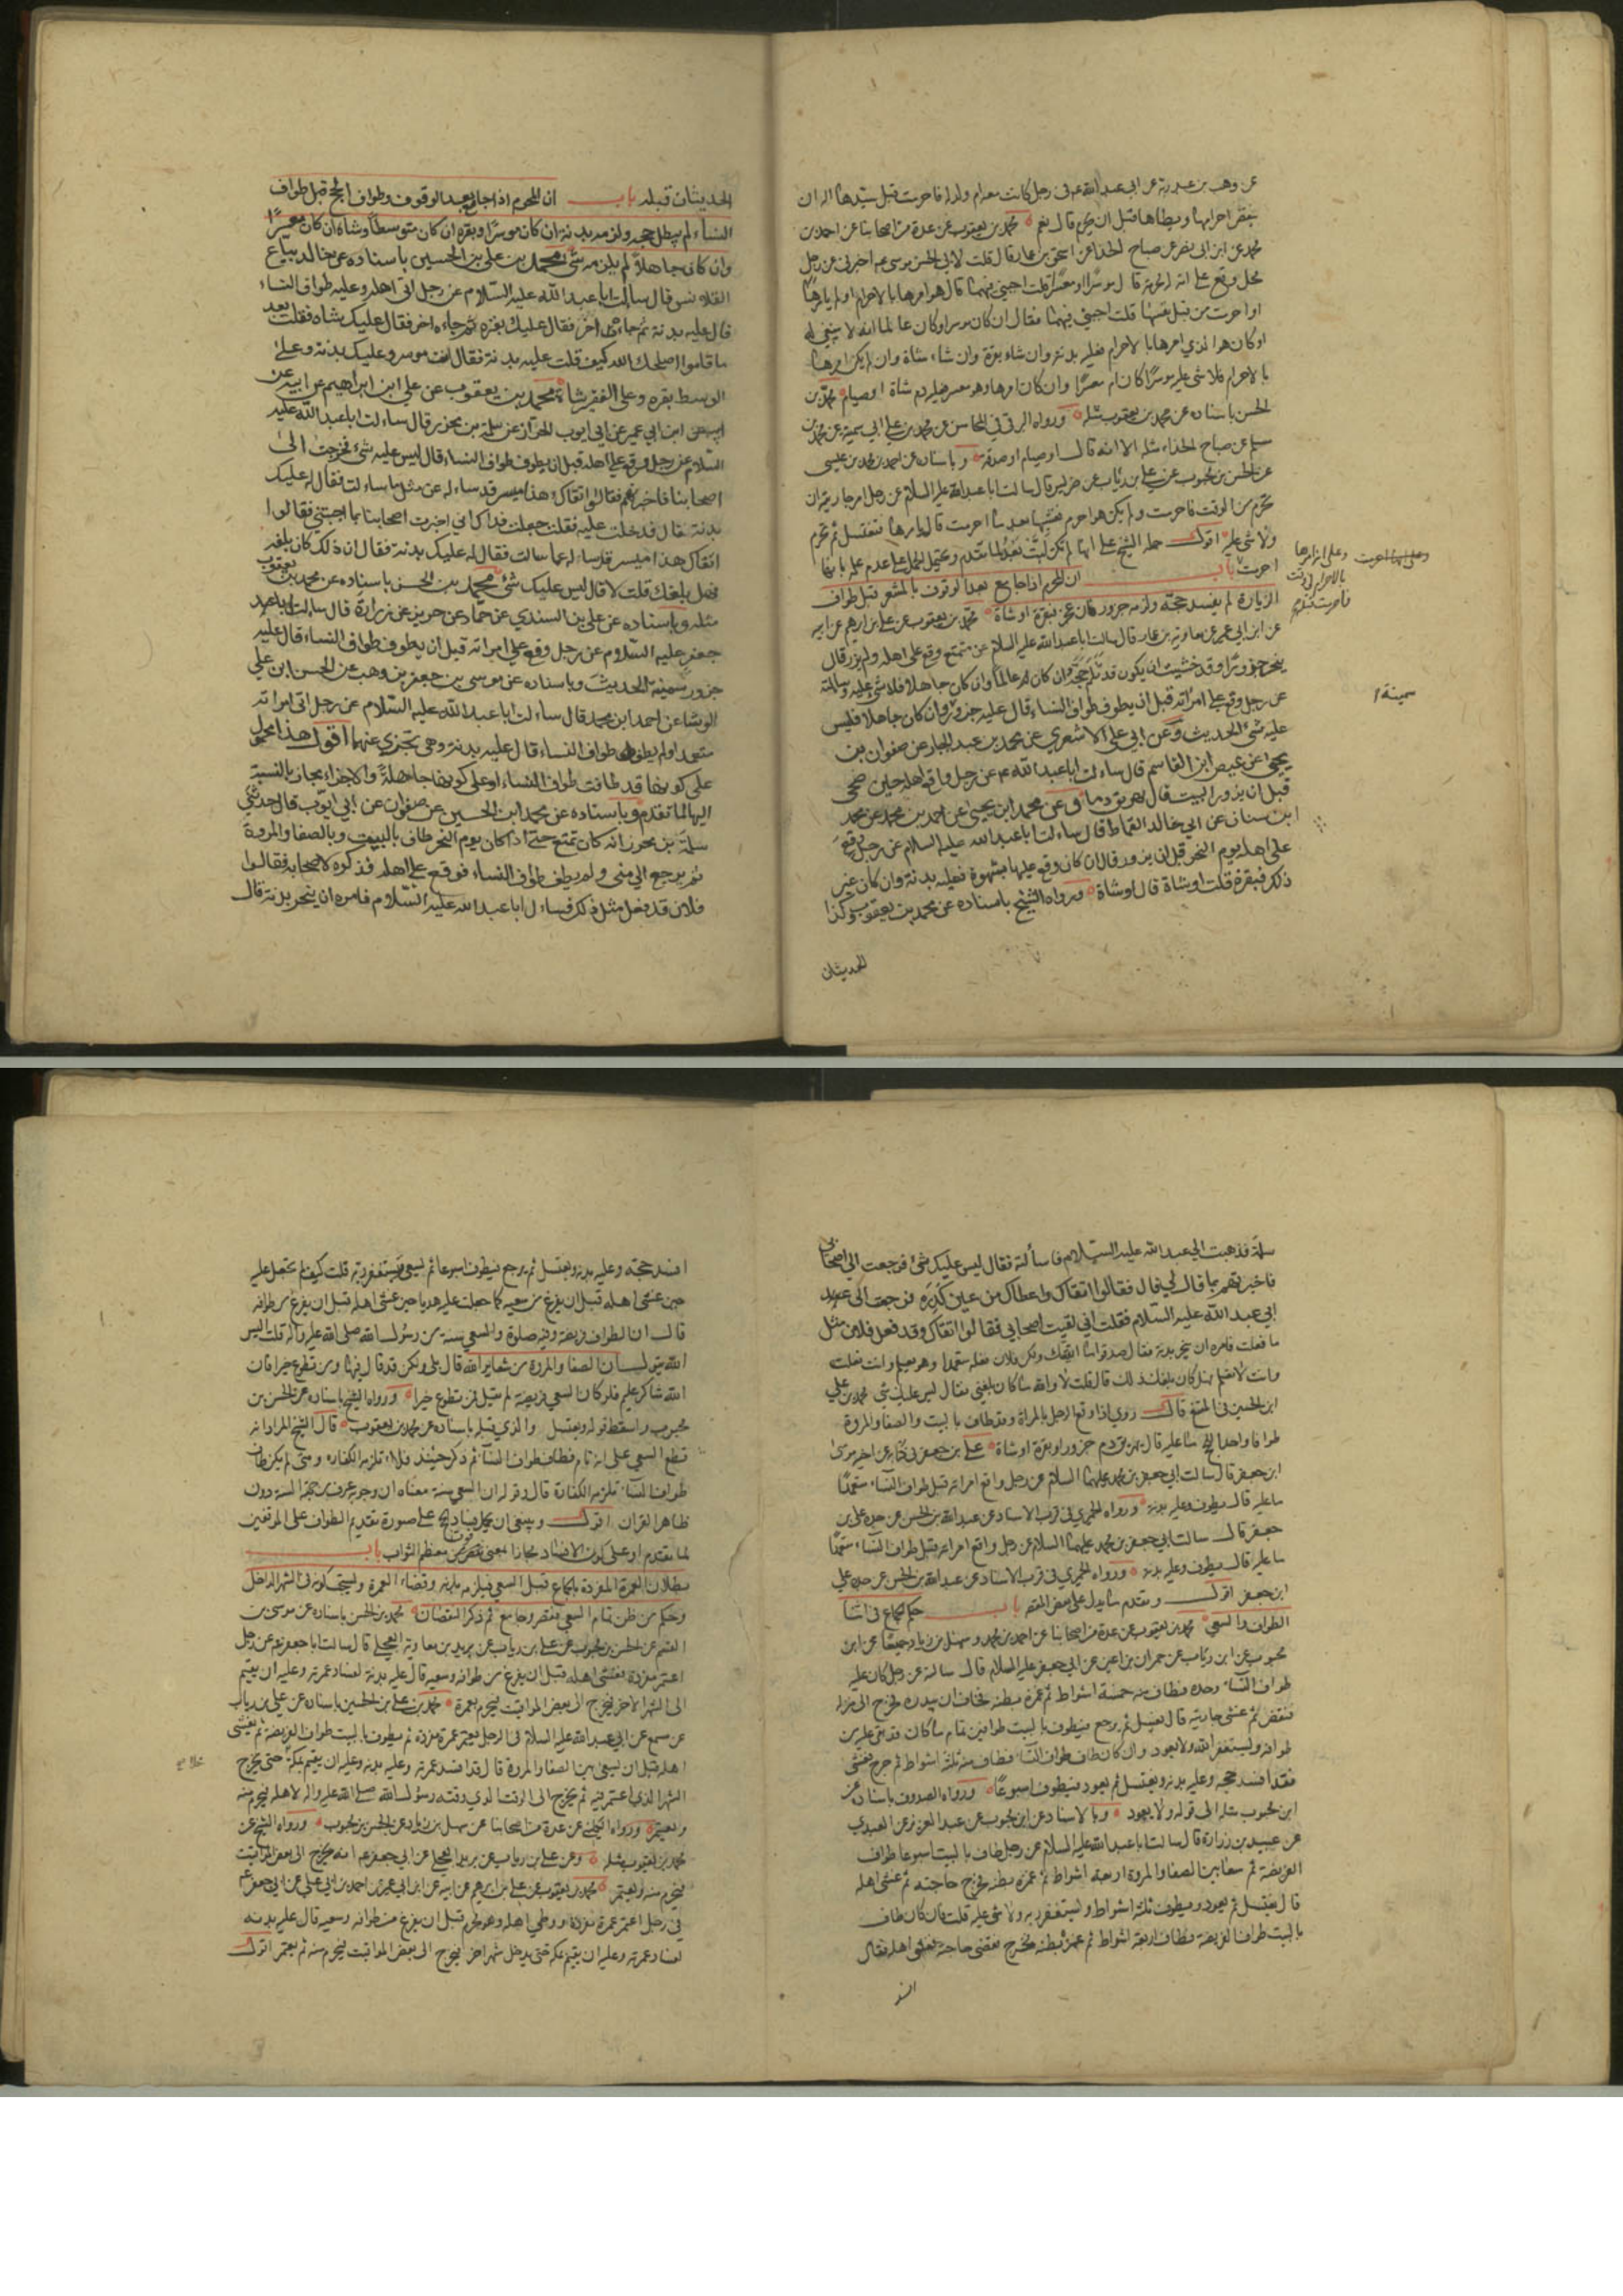 عن وهب بن عبد ربه عن ابى عبد الله ع فى رجل كانت معه ام ولد له فاحرمت قبل سيدها اله ان
ينقض احرامها ويطاها قبل ان يحرم قال نعم محمد بن يعقوب عن عدة من اصحابنا عن احمد بن
محمد عن ابن ابى نصر عن صباح الحذا عن اسحق بن عمار قال قلت لابى الحسن موسى ع اخبرنى عن رجل
محل وقع على امة له محرمة قال موسرا او معسرا قلت اجبنى فيهما قال هو امرها بالاحرام او لم يامرها
او احرمت من قبل نفسها قلت اجبنى فيهما فقال ان كان موسرا وكان عالما انه لا ينبغى له
او كان هو الذي امرها بالاحرام فعليه بدنة وان شاء بقرة وان شاء شاة وان لم يكن امرها
بالاحرام فلا شى عليه موسرا كان ام معسرا وان كان امرها وهو معسر فعليه دم شاة او صيام محمد بن
الحسن باسناده عن محمد بن يعقوب مثله ورواه البرقى في المحاسن عن محمد بن علي ابي سمينة عن محمد بن
سلم عن صباح الحذاء مثله الا انه قال او صيام او صدقة وباسناده عن احمد بن محمد بن عيسى
عن الحسن بن محبوب عن علي بن رئاب عن ضريس قال سالت ابا عبد الله عليه السلام عن رجل امر جاريته ان
تحرم من الوقت فاحرمت ولم يكن هو احرم فغشيها بعد ما احرمت قال يامرها فتغتسل ثم تحرم
ولا شى عليه اقول حمله الشيخ على انها لم تكن لبت بعد لما تقدم ويحتمل الحمل على عدم علمه بانها
احرمت باب ان المحرم اذا جامع بعد الوقوف بالمشعر قبل طواف
الزيارة لم يفسد حجه ولزمه جزور فان عجز فبقرة او شاة محمد بن يعقوب عن علي بن ابرهيم عن ابيه
عن ابن ابي عمير عن معاوية بن عمار قال سالت ابا عبد الله عليه السلام عن متمتع وقع على اهله ولم يزر قال
ينحر جزورا وقد خشيت ان يكون قد ثلم حجه ان كان عالما وان كان جاهلا فلا شى عليه وسالته
عن رجل وقع على امراته قبل ان يطوف طواف النساء قال عليه جزور وان كان جاهلا فليس
عليه شى الحديث وعن ابي علي الاشعري عن محمد بن عبد الجبار عن صفوان بن
يحيى عن عيص ابن القاسم قال ساءلت ابا عبد الله ع عن رجل واقع اهله حين ضحى
قبل ان يزور البيت قال يهريق دما وعن محمد ابن يحيى عن احمد بن محمد عن محمد
ابن سنان عن ابي خالد القماط قال ساءلت ابا عبد الله عليه السلام عن رجل وقع
على اهله يوم النحر قبل ان يزور قال ان كان وقع عليها بشهوة فعليه بدنة وان كان غير
ذلك فبقرة قلت او شاة قال او شاة ورواه الشيخ باسناده عن محمد بن يعقوب وكذا
الحديثان
سمينة
الحديثان قبله باب ان المحرم اذا جامع بعد الوقوف وطواف الحج قبل طواف
النساء لم يبطل حجه ولزمه بدنة ان كان موسرا وبقره ان كان متوسطا وشاة ان كان معسرا
وان كان جاهلا لم يلزمه شى محمد بن علي بن الحسين باسناده عن خالد بياع
القلانس قال سالت ابا عبد الله عليه السلام عن رجل اتى اهله وعليه طواف النساء
قال عليه بدنة ثم جاءه اخر فقال عليك بقره ثم جاءه اخر فقال عليك شاه فقلت بعد
ما قاموا اصلحك الله كيف قلت عليه بدنة فقال انت موسر وعليك بدنة وعلى
الوسط بقره وعلى الفقير شاة محمد بن يعقوب عن على ابن ابراهيم عن ابيه عن
ابن ابي عمير عن ابي ايوب الخزاز عن سلمة بن محرز قال ساءلت ابا عبد الله عليه
السلام عن رجل وقع على اهله قبل ان يطوف طواف النساء قال ليس عليه شئ فخرجت الى
اصحابنا فاخبرتهم فقالوا اتقاك هذا ميسر قد ساءله عن مثل ما ساءلت فقال له عليك
بدنة قال فدخلت عليه فقلت جعلت فداك اني اخبرت اصحابنا بما اجبتني فقالوا
اتقاك هذا ميسر قد ساءله عما سالت فقال له عليك بدنة فقال ان ذلك كان بلغه
فهل بلغك قلت لا قال ليس عليك شئ محمد بن الحسن باسناده عن محمد بن يعقوب
مثله وباسناده عن علي بن السندي عن حماد عن حريز عن زرارة قال سالت ابا
جعفر عليه السلام عن رجل وقع على امراته قبل ان يطوف طواف النساء قال عليه
جزور سمينة الحديث وباسناده عن موسى بن جعفر بن وهب عن الحسن ابن علي
الوشا عن احمد ابن محمد قال ساءلت ابا عبد الله عليه السلام عن رجل اتى امراته
متعمدا ولم يطف طواف النساء قال عليه بدنة وهى تجزي عنهما اقول هذا محمول
على كونها قد طافت طواف النساء او على كونها جاهلة والاجزاء مجاز بالنسبة
اليها لما تقدم وباسناده عن محمد ابن الحسين عن صفوان عن ابي ايوب قال حدثني
سلمة بن محرز انه كان تمتع حتى اذا كان يوم النحر طاف بالبيت وبالصفا والمروة
ثم يرجع الى منى ولم يطف طواف النساء فوقع على اهله فذكره لاصحابه فقالوا
فلان قد فعل مثل ذلك فساءل ابا عبد الله عليه السلام فامره ان ينحر بدنة قال
سلمة فذهبت الى عبد الله عليه السلام فاسألته فقال ليس عليك شئ فرجعت الى اصحابى
فاخبرتهم بما قال لي قال فقالوا اتقاك واعطاك من عين كدرة فرجعت الى
ابي عبد الله عليه السلام فقلت اني لقيت اصحابي فقالوا اتقاك وقد فعل فلان مثل
ما فعلت فامره ان ينحر بدنة فقال صدقوا ما اتقيتك ولكن فلان فعله متعمدا وهو يعلم وانت فعلت
وانت لا تعلم فهل كان بلغك ذلك قال قلت لا والله ما كان بلغني فقال ليس عليك شى محمد بن علي
ابن الحسين في المقنع قال روي اذا وقع الرجل بالمراة وقد طاف بالبيت والصفا والمروة
طوافا واحدا للحج ما عليه قال يهريق دم جزور او بقرة او شاة علي بن جعفر في كتابه عن اخيه موسى
ابن جعفر قال سالت ابي جعفر بن محمد عليهما السلام عن رجل واقع امراته قبل طواف النساء متعمدا
ما عليه قال يطوف وعليه بدنة ورواه الحميري فى قرب الاسناد عن عبد الله بن الحسن عن جده علي بن
جعفر قال سالت ابي جعفر بن محمد عليهما السلام عن رجل واقع امراته قبل طواف النساء متعمدا
ما عليه قال يطوف وعليه بدنة ورواه الحميري فى قرب الاسناد عن عبد الله بن الحسن عن جده علي
ابن جعفر اقول وتقدم ما يدل على بعض المقصود باب حكم الجماع فى اثنا
الطواف والسعي محمد بن يعقوب عن عدة من اصحابنا عن احمد بن محمد وسهل بن زياد جميعا عن ابن
محبوب عن ابن رئاب عن حمران بن اعين عن ابي جعفر عليه السلام قال سالته عن رجل كان عليه
طواف النساء وحده فطاف منه خمسة اشواط ثم غمزه بطنه فخاف ان يبدره فخرج الى منزله
فنقض ثم غشى جاريته قال يغتسل ثم يرجع فيطوف بالبيت طوافين تمام ما كان قد بقى عليه من
طوافه ويستغفر الله ولا يعود وان كان طاف طواف النساء فطاف منه ثلثة اشواط ثم خرج فغشى
فقد افسد حجه وعليه بدنة ويغتسل ثم يعود فيطوف اسبوعا ورواه الصدوق باسناده عن
ابن محبوب مثله الى قوله ولا يعود وبالاسناد عن ابن محبوب عن عبد العزيز عن العبدي
عن عبيد بن زرارة قال سالت ابا عبد الله عليه السلام عن رجل طاف بالبيت اسبوعا طواف
الفريضة ثم سعا بين الصفا والمروة اربعة اشواط ثم غمزه بطنه فخرج فقضى حاجته ثم غشى اهله
قال يغتسل ثم يعود ويطوف ثلثة اشواط ويستغفر ربه ولا شى عليه قلت فان كان طاف
بالبيت طواف الفريضة فطاف اربعة اشواط ثم غمزه بطنه فخرج فقضى حاجته فغشى اهله فقال
افسد حجه وعليه بدنة ويغتسل ثم يرجع فيطوف اسبوعا ثم يسعى ويستغفر ربه قلت كيف لم تجعل عليه
حين غشى اهله قبل ان يفرغ من سعيه كما جعلت عليه هديا حين غشى اهله قبل ان يفرغ من طوافه
قال ان الطواف فريضة وفيه صلوة والسعي سنة من رسول الله صلى الله عليه واله قلت اليس
الله يقول ان الصفا والمروة من شعاير الله قال بلى ولكن قد قال فيهما ومن تطوع خيرا فان
الله شاكر عليم فلو كان السعي فريضة لم يقل فمن تطوع خيرا ورواه الشيخ باسناده عن الحسن بن
محبوب واسقط قوله ويغتسل والذي قبله باسناده عن محمد بن يعقوب قال الشيخ المراد انه
قطع السعي على انه تام فطاف طواف النساء ثم ذكر حينئذ فلا تلزمه الكفارة ومتى لم يكن طاف
طواف النساء تلزمه الكفارة قال وقوله ان السعي سنة معناه ان وجوبه عرف من جهة السنة دون
ظاهر القران اقول وينبغي ان يحمل فساد الحج على صورة تقديم الطواف على الموقفين
لما تقدم او على كون الافساد مجازا بمعنى نقص من معظم الثواب باب
بطلان العمرة المفردة بالجماع قبل السعي فيلزمه بدنة وقضاء العمرة ويستحب كونه فى الشهر الداخل
وحكم من ظن تمام السعي فقصر وجامع ثم ذكر النقصان محمد بن الحسن باسناده عن موسى بن
القسم عن الحسن بن محبوب عن علي بن رياب عن بريد بن معاوية العجلي قال سالت ابا جعفر ع عن رجل
اعتمر مفردة فغشى اهله قبل ان يفرغ من طوافه وسعيه قال عليه بدنة لفساد عمرته وعليه ان يقيم
الى الشهر الاخر فيخرج الى بعض المواقيت فيحرم بعمرة محمد بن علي بن الحسين باسناده عن علي بن رياب
عن مسمع عن ابي عبد الله عليه السلام فى الرجل يعتمر عمرة مفردة ثم يطوف بالبيت طواف الفريضة ثم يغشى
اهله قبل ان يسعى بين الصفا والمروة قال قد افسد عمرته وعليه بدنة وعليه ان يقيم بمكة حتى يخرج
الشهر الذي اعتمر فيه ثم يخرج الى الوقت الذي وقته رسول الله صلى الله عليه واله لاهله فيحرم منه
ويعتمر ورواه الكليني عن عدة من اصحابنا عن سهل بن زياد عن الحسن بن محبوب ورواه الشيخ عن
محمد بن يعقوب مثله وعن علي بن رياب عن بريد العجلي عن ابي جعفر ع انه يخرج الى بعض المواقيت
فيحرم منه ويعتمر محمد بن يعقوب عن علي بن ابرهيم عن ابيه عن ابن ابي عمير عن احمد بن ابي علي عن ابي جعفر ع
فى رجل اعتمر عمرة مفردة ووطي اهله وهو محرم قبل ان يفرغ من طوافه وسعيه قال عليه بدنة
لفساد عمرته وعليه ان يقيم بمكة حتى يدخل شهر اخر فيخرج الى بعض المواقيت فيحرم منه ثم يعتمر اقول